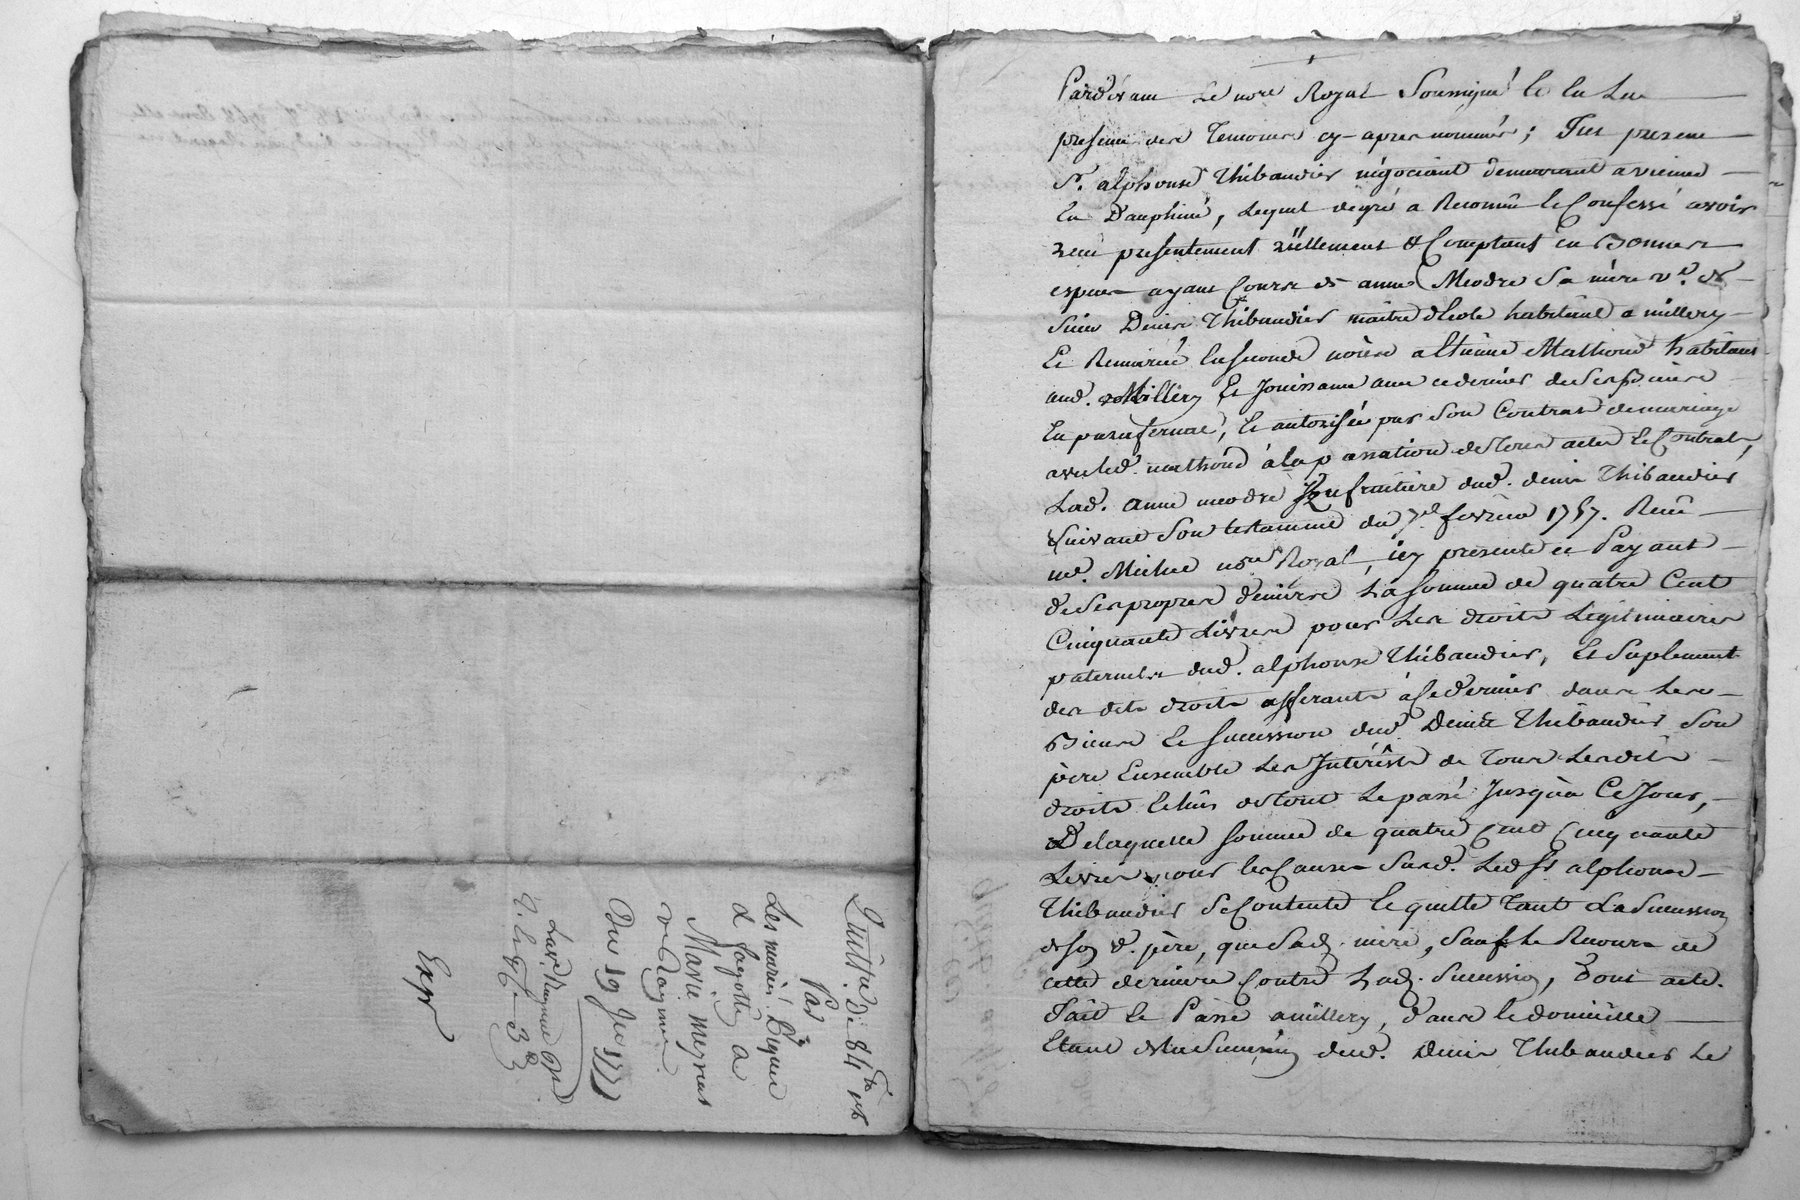 Quitta. de 84 tt
Par
Les mariés Bigue
&
a
Marie meyriat
ve Raymon
Du 19 Jer 1771
Exp
Pardevant Le nore Royal Soussigné Et En La
presence des Temoins cy-apres nommés ; Fut present
Sr. alphonse Thibaudier négociant demeurant a vienne
En Dauphiné, Lequel de gré a Reconnu Et Confessé avoir
reçu presentement réellement & Comptant En Bonnes
especes ayant Cours de anne Meodre Sa mère ve. de
Sieur Denis Thibaudier maître d'Ecole habitant a millery
Et Remariée En Seconde nôces a Etienne Mathoud habitant
aud. Millery Et Jouissant avec ce dernier de Ses Biens
En parafernal, Et autorisée par Son Contrat de mariage
avec led. mathoud à la passation de tous actes Et Contrats,
Lad. anne meodre Usufruitière dud. denis Thibaudier
Suivant Son testament du 7e fevrier 1757. Reçu
me. Nore Royal, icy presente et Payant
de Ses propres deniers La Somme de quatre Cent
Cinquante Livres pour Les droits Légitimaires
paternels dud. alphonse Thibaudier, Et Suplement
des dits droits afferants à Ce dernier dans Les
Biens Et Succession dud. Denis Thibaudier Son
père Ensemble Les Intérêts de Tous Lesdits
droits Echus de tout Le passé Jusqu'à Ce Jour,
De laquelle Somme de quatre Cent Cinquante
Livres pour les Causes Susd. Led. Sr alphonse
Thibaudier Se Contente Et quitte Tant La Succession
de Son d. père, que Sad. mère, Sauf Le Recours de
cette derniere Contre Lad. Succession, Dont acte.
Fait Et Passé a millery, dans le domicille
Etant de la Succession dud. Denis Thibaudier Le